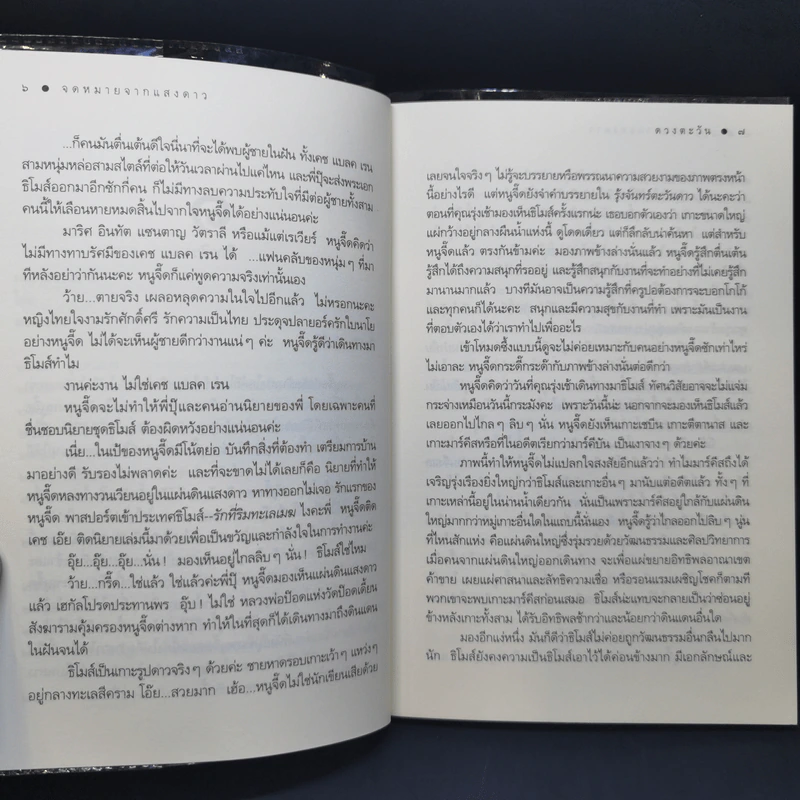 ๖ ● จดหมายจากแสงดาว
...ก็คนมันตื่นเต้นดีใจนี่นาที่จะได้พบผู้ชายในฝัน ทั้งเคช แบลค เรน
สามหนุ่มหล่อสามสไตล์ที่ต่อให้วันเวลาผ่านไปแค่ไหน และพี่ปุ๊จะส่งพระเอก
ธิโมส์ออกมาอีกซักกี่คน ก็ไม่มีทางลบความประทับใจที่มีต่อผู้ชายทั้งสาม
คนนี้ให้เลือนหายหมดสิ้นไปจากใจหนูจี๊ดได้อย่างแน่นอนค่ะ
มาริศ อินทัต แซนตาญ วัตราลี หรือแม้แต่เรเวียร์ หนูจี๊ดคิดว่า
ไม่มีทางทาบรัศมีของเคช แบลค เรน ได้ ...แฟนคลับของหนุ่มๆ ที่มา
ทีหลังอย่าว่ากันนะคะ หนูจี๊ดก็แค่พูดความจริงเท่านั้นเอง
ว้าย...ตายจริง เผลอหลุดความในใจไปอีกแล้ว ไม่หรอกนะคะ
หญิงไทยใจงามรักศักดิ์ศรี รักความเป็นไทย ประดุจปลายอร์ครักในนาโย
อย่างหนูจี๊ด ไม่ได้จะเห็นผู้ชายดีกว่างานแน่ๆ ค่ะ หนูจี๊ดรู้ดีว่าเดินทางมา
ธิโมส์ทำไม
งานค่ะงาน ไม่ใช่เคช แบลค เรน
หนูจี๊ดจะไม่ทำให้พี่ปุ๊และคนอ่านนิยายของพี่ โดยเฉพาะคนที่
ชื่นชอบนิยายชุดธิโมส์ ต้องผิดหวังอย่างแน่นอนค่ะ
เนี่ย...ในเป้ของหนูจี๊ดมีโน้ตย่อ บันทึกสิ่งที่ต้องทำ เตรียมการบ้าน
มาอย่างดี รับรองไม่พลาดค่ะ และที่จะขาดไม่ได้เลยก็คือ นิยายที่ทำให้
หนูจี๊ดหลงทางวนเวียนอยู่ในแผ่นดินแสงดาว หาทางออกไม่เจอ รักแรกของ
หนูจี๊ด พาสปอร์ตเข้าประเทศธิโมส์--รักที่ริมทะเลเมฆ ไงคะพี่ หนูจี๊ดติด
เคช เอ๊ย ติดนิยายเล่มนี้มาด้วยเพื่อเป็นขวัญและกำลังใจในการทำงานค่ะ
อุ๊ย...อุ๊ย...อุ๊ย...นั่น! มองเห็นอยู่ไกลลิบๆ นั่น! ธิโมส์ใช่ไหม
ว้าย...กรี๊ด...ใช่แล้ว ใช่แล้วค่ะพี่ปุ๊ หนูจี๊ดมองเห็นแผ่นดินแสงดาว
แล้ว เฮกัลโปรดประทานพร อุ๊บ! ไม่ใช่ หลวงพ่อป๊อดแห่งวัดป๊อดเตี้ยน
สังฆารามคุ้มครองหนูจี๊ดต่างหาก ทำให้ในที่สุดก็ได้เดินทางมาถึงดินแดน
ในฝันจนได้
ธิโมส์เป็นเกาะรูปดาวจริงๆ ด้วยค่ะ ชายหาดรอบเกาะเว้าๆ แหว่งๆ
อยู่กลางทะเลสีคราม โอ๊ย...สวยมาก เฮ้อ...หนูจี๊ดไม่ใช่นักเขียนเสียด้วย
ดวงตะวัน ● ๗
เลยจนใจจริงๆ ไม่รู้จะบรรยายหรือพรรณนาความสวยงามของภาพตรงหน้า
นี้อย่างไรดี แต่หนูจี๊ดยังจำคำบรรยายใน รุ้งจันทร์ตะวันดาว ได้นะคะว่า
ตอนที่คุณรุ่งเช้ามองเห็นธิโมส์ครั้งแรกน่ะ เธอบอกตัวเองว่า เกาะขนาดใหญ่
แผ่กว้างอยู่กลางผืนน้ำแห่งนี้ ดูโดดเดี่ยว แต่ก็ลึกลับน่าค้นหา แต่สำหรับ
หนูจี๊ดแล้ว ตรงกันข้ามค่ะ มองภาพข้างล่างนั่นแล้ว หนูจี๊ดรู้สึกตื่นเต้น
รู้สึกได้ถึงความสุขที่รออยู่ และรู้สึกสนุกกับงานที่จะทำอย่างที่ไม่เคยรู้สึก
มานานมากแล้ว บางทีมันอาจเป็นความรู้สึกที่ครูปอต้องการจะบอกโกโก้
และทุกคนก็ได้นะคะ สนุกและมีความสุขกับงานที่ทำ เพราะมันเป็นงาน
ที่ตอบตัวเองได้ว่าเราทำไปเพื่ออะไร
เข้าโหมดซึ้งแบบนี้ดูจะไม่ค่อยเหมาะกับคนอย่างหนูจี๊ดซักเท่าไหร่
ไม่เอาละ หนูจี๊ดกระดี๊กระด๊ากับภาพข้างล่างนั่นต่อดีกว่า
หนูจี๊ดคิดว่าวันที่คุณรุ่งเช้าเดินทางมาธิโมส์ ทัศนวิสัยอาจจะไม่แจ่ม
กระจ่างเหมือนวันนี้กระมังคะ เพราะวันนี้น่ะ นอกจากจะมองเห็นธิโมส์แล้ว
เลยออกไปไกลๆ ลิบๆ นั่น หนูจี๊ดยังมองเห็นเกาะเซบีน เกาะตีตานาส และ
เกาะมาร์คีสหรือที่ในอดีตเรียกว่ามาร์คีบัน เป็นเงาจางๆ ด้วยค่ะ
ภาพนี้ทำให้หนูจี๊ดไม่แปลกใจสงสัยอีกแล้วว่า ทำไมมาร์คีสถึงได้
เจริญรุ่งเรืองยิ่งใหญ่กว่าธิโมส์และเกาะอื่นๆ มานับแต่อดีตแล้ว ทั้งๆ ที่
เกาะเหล่านี้อยู่ในน่านน้ำเดียวกัน นั่นเป็นเพราะมาร์คีสอยู่ใกล้กับแผ่นดิน
ใหญ่มากกว่าหมู่เกาะอื่นใดในแถบนี้นั่นเอง หนูจี๊ดรู้ว่าไกลออกไปลิบๆ นู่น
ที่ไหนสักแห่ง คือแผ่นดินใหญ่ซึ่งรุ่มรวยด้วยวัฒนธรรมและศิลปวิทยาการ
เมื่อคนจากแผ่นดินใหญ่ออกเดินทาง จะเพื่อแผ่ขยายอิทธิพลอาณาเขต
ค้าขาย เผยแผ่ศาสนาและลัทธิความเชื่อ หรือรอนแรมเผชิญโชคก็ตามที
พวกเขาจะพบเกาะมาร์คีสก่อนเสมอ ธิโมส์น่ะแทบจะกลายเป็นว่าซ่อนอยู่
ข้างหลังเกาะทั้งสาม ได้รับอิทธิพลช้ากว่าและน้อยกว่าดินแดนอื่นใด
มองอีกแง่หนึ่ง มันก็ดีว่าธิโมส์ไม่ค่อยถูกวัฒนธรรมอื่นกลืนไปมาก
นัก ธิโมส์ยังคงความเป็นธิโมส์เอาไว้ได้ค่อนข้างมาก มีเอกลักษณ์และ